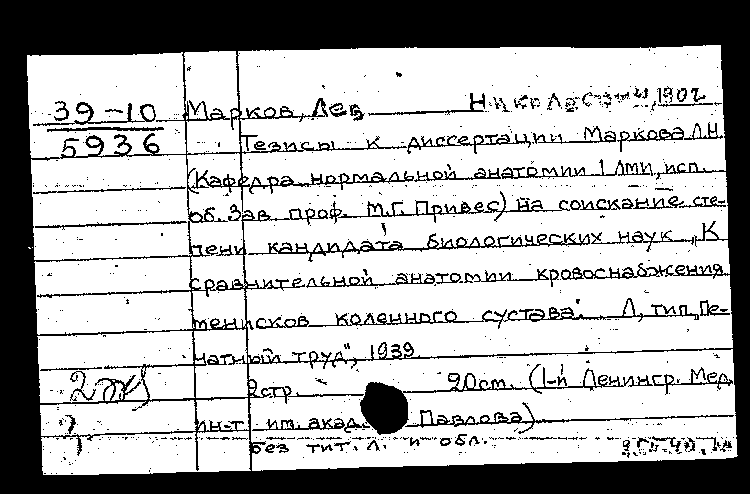 39-10
5936
Марков, Лев Николаевич, 1902
Тезисы к диссертации Маркова Л.Н.
(Кафедра нормальной анатомии 1 ЛМИ, исп.
об. Зав. проф. М.Г. Привес) на соискание сте-
пени кандидата биологических наук „К
сравнительной анатомии кровоснабжения
менисков коленного сустава". Л, тип „Пе-
чатный труд", 1939.
2 стр. 20 см. (1-й Ленингр. Мед.
ин-т им. акад. Павлова)
без тит. л. и обл.